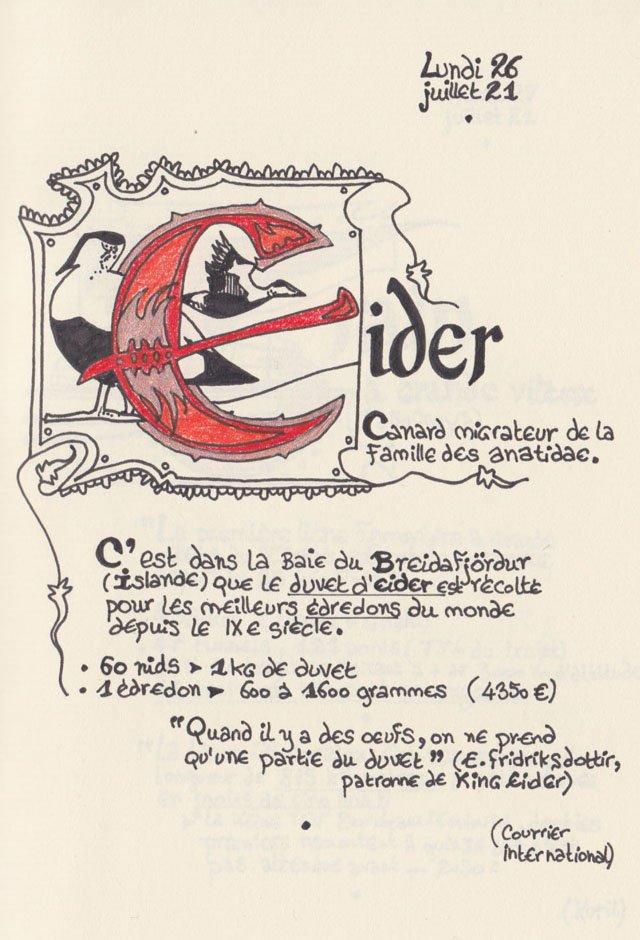 Lundi 26
juillet 21
Eider
Canard migrateur de la
famille des anatidae.
C'est dans la Baie du Breidafjördur
(Islande) que le duvet d'eider est récolté
pour les meilleurs édredons du monde
depuis le IXe siècle.
• 60 nids ➤ 1 kg de duvet
• 1 édredon ➤ 600 à 1600 grammes (4350 €)
"Quand il y a des oeufs, on ne prend
qu'une partie du duvet" (E. Fridriksdottir,
patronne de King Eider)
(Courrier
International)